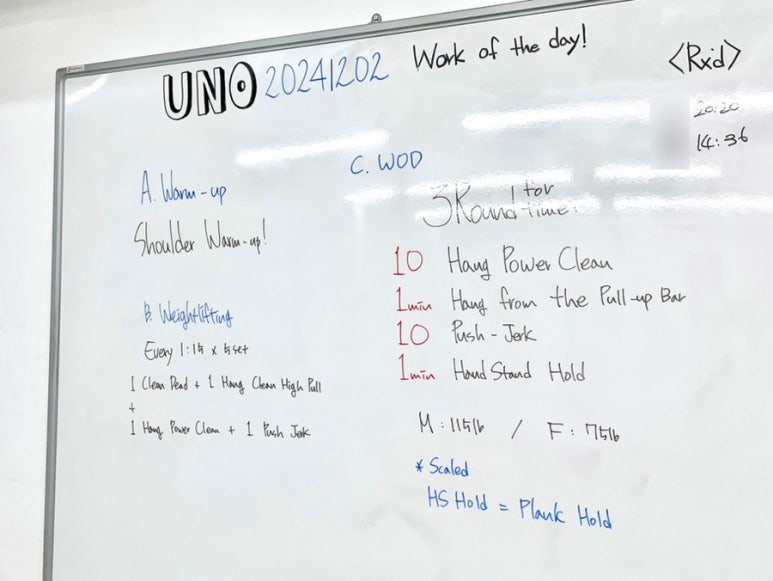 UNO 20241202 Work of the day!
<Rx'd>
20:20
14:36
A. Warm-up
Shoulder Warm-up!
B. Weightlifting
Every 1:15 x 5set
1 Clean Dead + 1 Hang Clean High Pull
+
1 Hang Power Clean + 1 Push Jerk
C. WOD
3 Round for time:
10 Hang Power Clean
1min Hang from the Pull-up Bar
10 Push-Jerk
1min Hand Stand Hold
M: 115lb / F: 75lb
* Scaled
HS Hold = Plank Hold